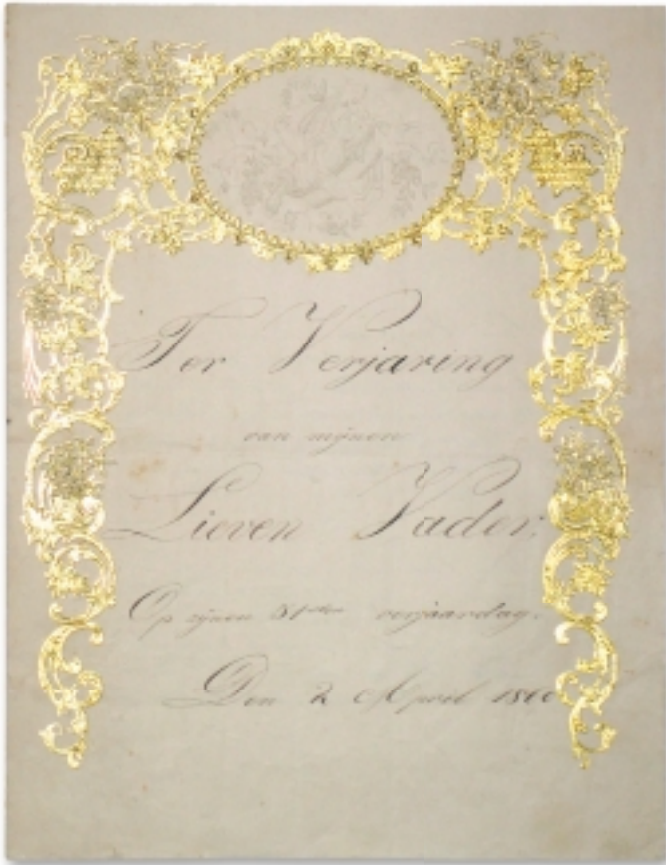 Ter Verjaring
van mijnen
Lieven Vader.
Op zijnen 51sten verjaardag.
Den 2 April